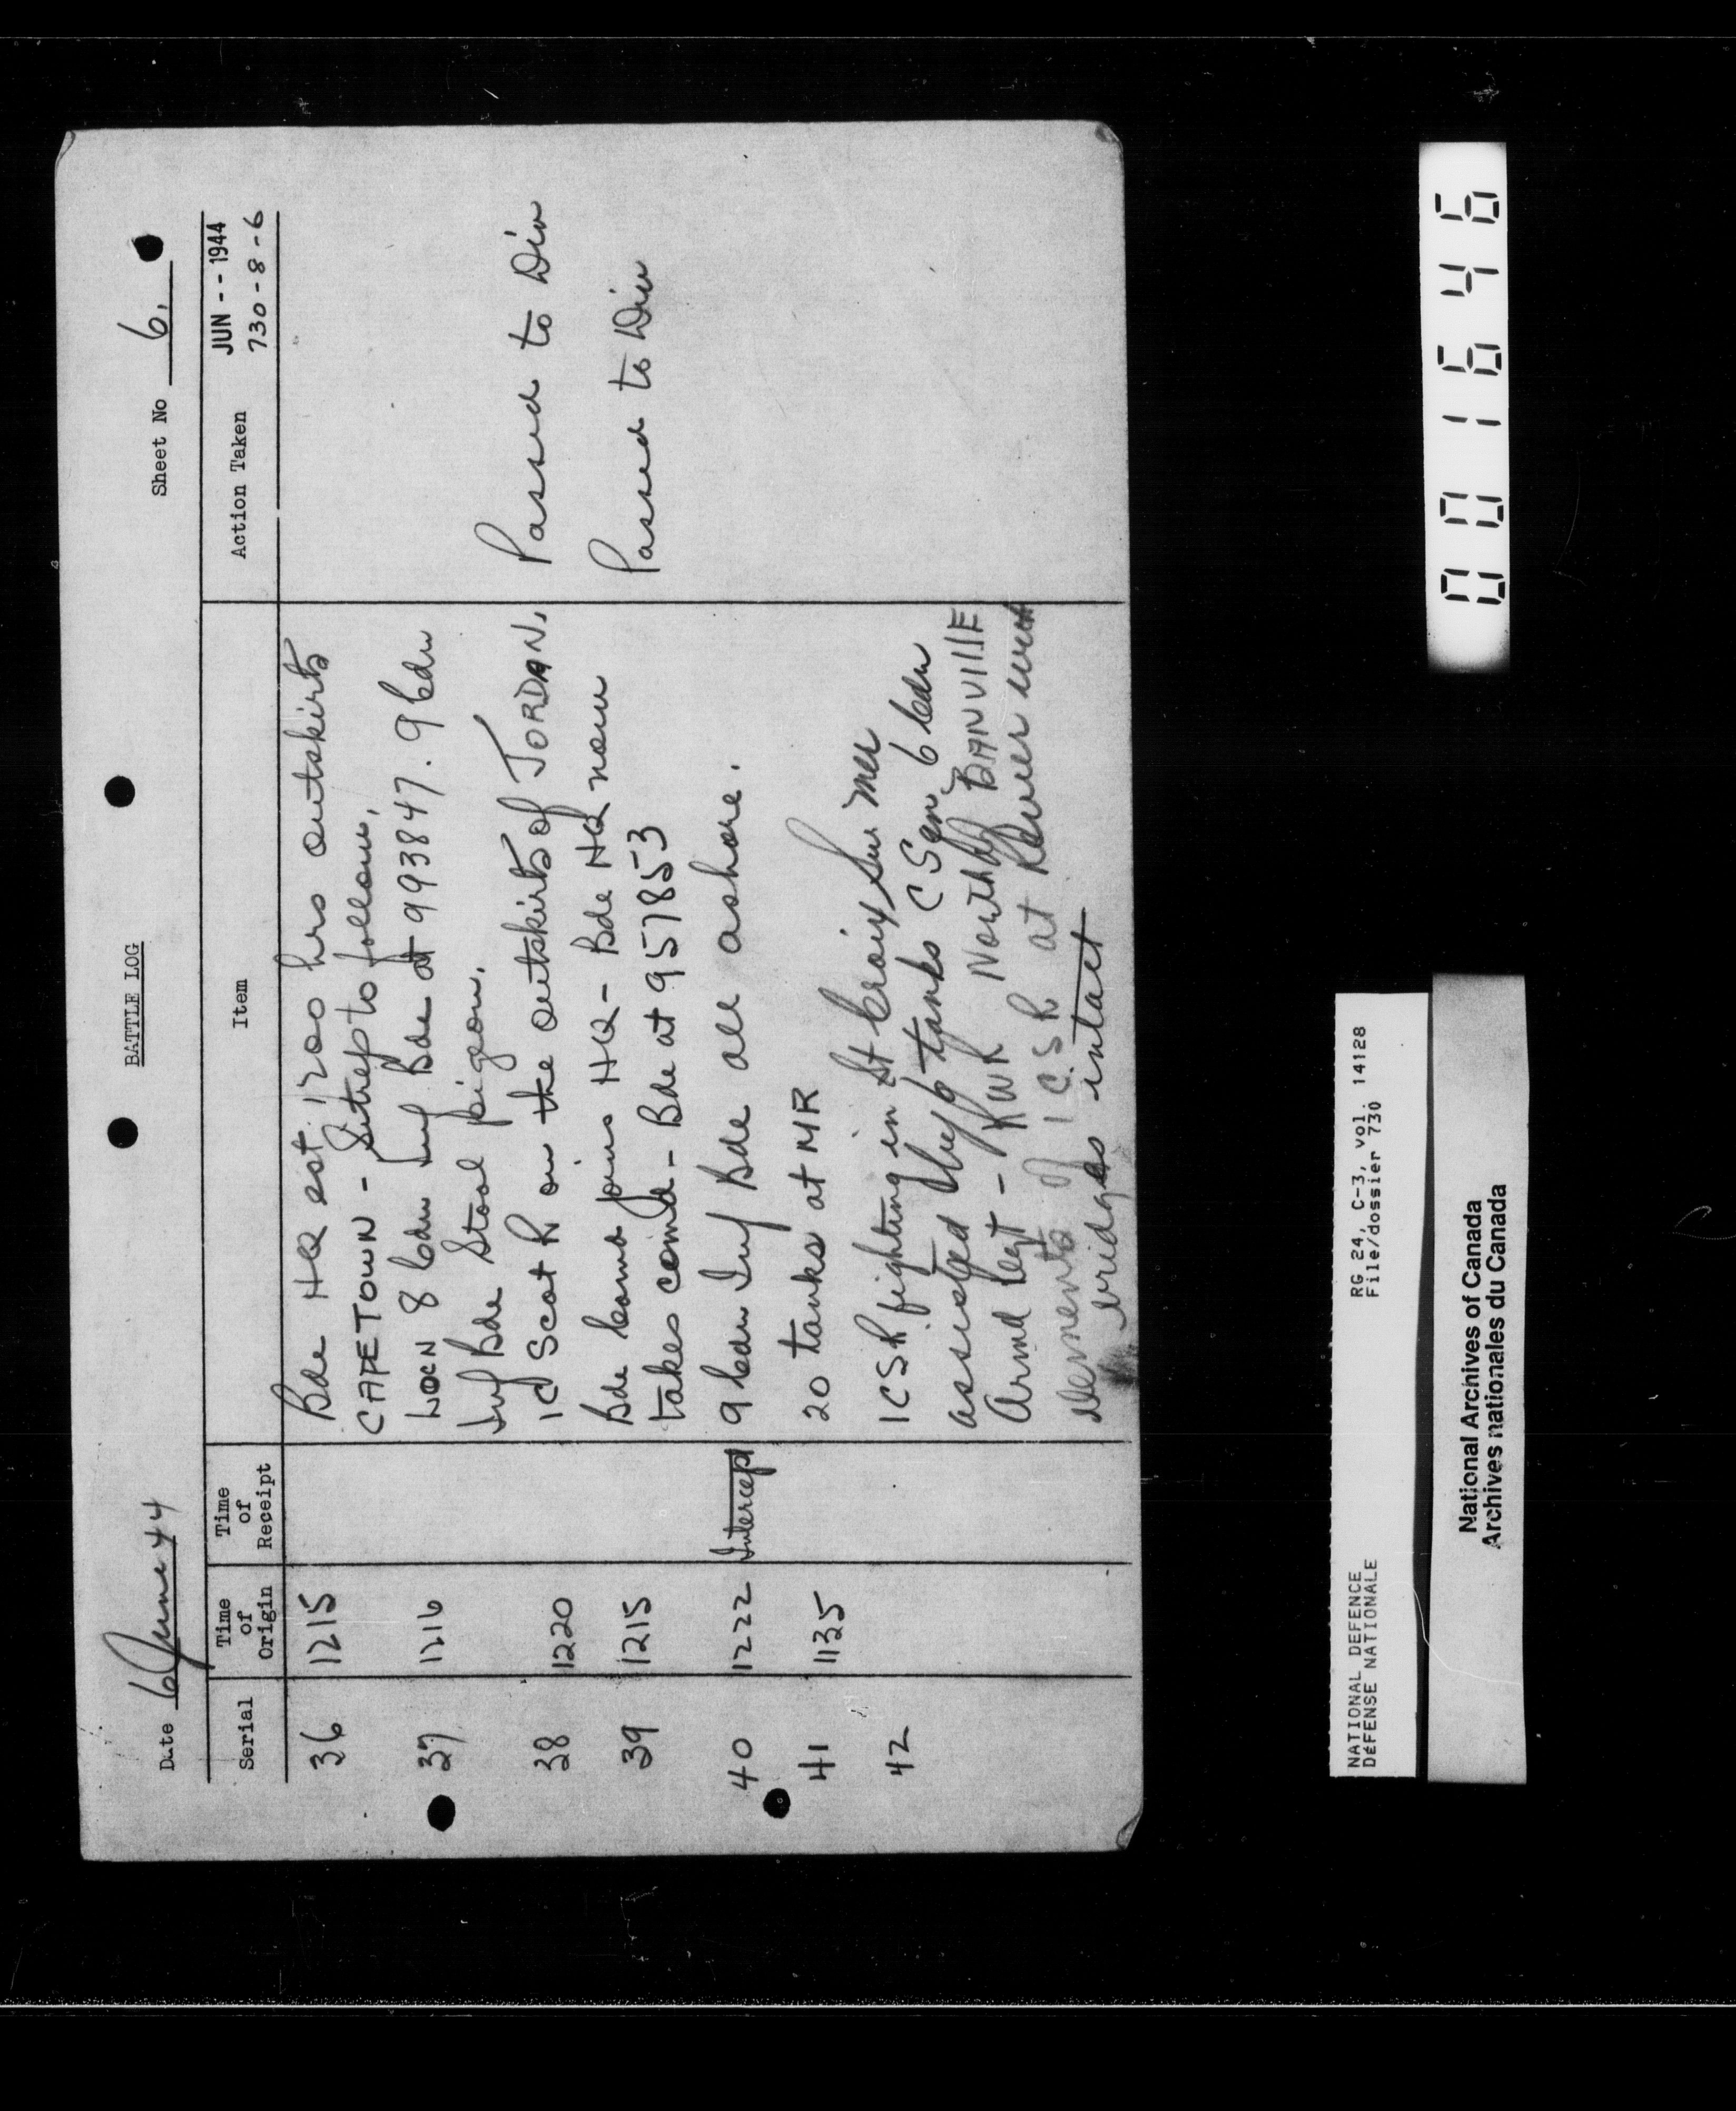 BATTLE LOG
Date 6 June 44
Sheet No 6.
Serial
Time of Origin
Time of Receipt
Item
Action Taken
JUN - - 1944
730-8-6
36 1215 Bde HQ est 1200 hrs outskirts
CAPETOWN - Sitrep to follow.
37 1216 LOCN 8 Cdn Inf Bde at 993847. 9 Cdn
Inf Bde Stool pigeon.
38 1220 1 C Scot R on the outskirts of JORDAN. Passed to Div
39 1215 Bde Comd joins HQ - Bde HQ now Passed to Div
takes comd - Bde at 957853
40 1222 Intercept 9 Cdn Inf Bde all ashore.
41 1135 20 tanks at MR
42 1 CSR fighting in St Croix Sur Mer
assisted by 6 tanks C Sqn 6 Cdn
Armd Regt - RWR North of BANVILLE
elements of 1 C.S R at River
bridges intact
0001646
NATIONAL DEFENCE
DÉFENSE NATIONALE
RG 24, C-3, vol. 14128
File/dossier 730
National Archives of Canada
Archives nationales du Canada